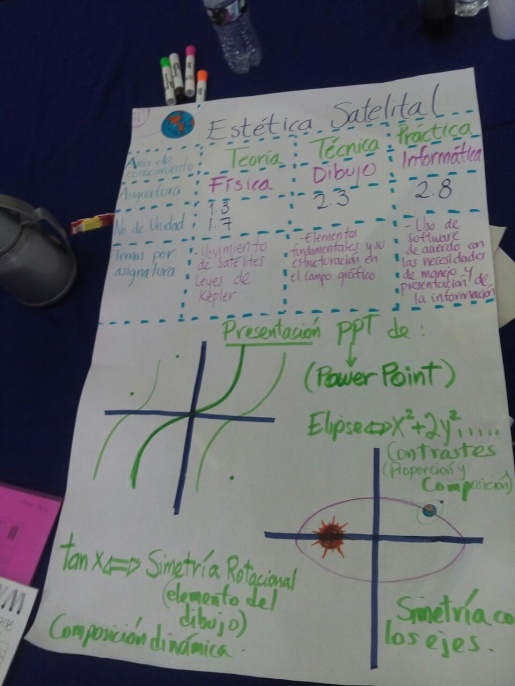 Estética Satelital
Área de conocimiento
Teoría
Técnica
Práctica
Asignatura
Física
Dibujo
Informática
No. de Unidad
1.3
1.7
2.3
2.8
Temas por
asignatura
- Movimiento
de Satélites
Leyes de
Kepler
- Elementos
fundamentales y su
estructuración en
el campo gráfico
- Uso de
software
de acuerdo con
las necesidades
de manejo y
presentación de
la información
Presentación PPT de:
(Power Point)
Elipse⇔x²+2y².....
Contrastes
(Proporción y
Composición)
tan x⇔Simetría Rotacional
(elemento del
dibujo)
Composición dinámica.
Simetría co
los ejes.